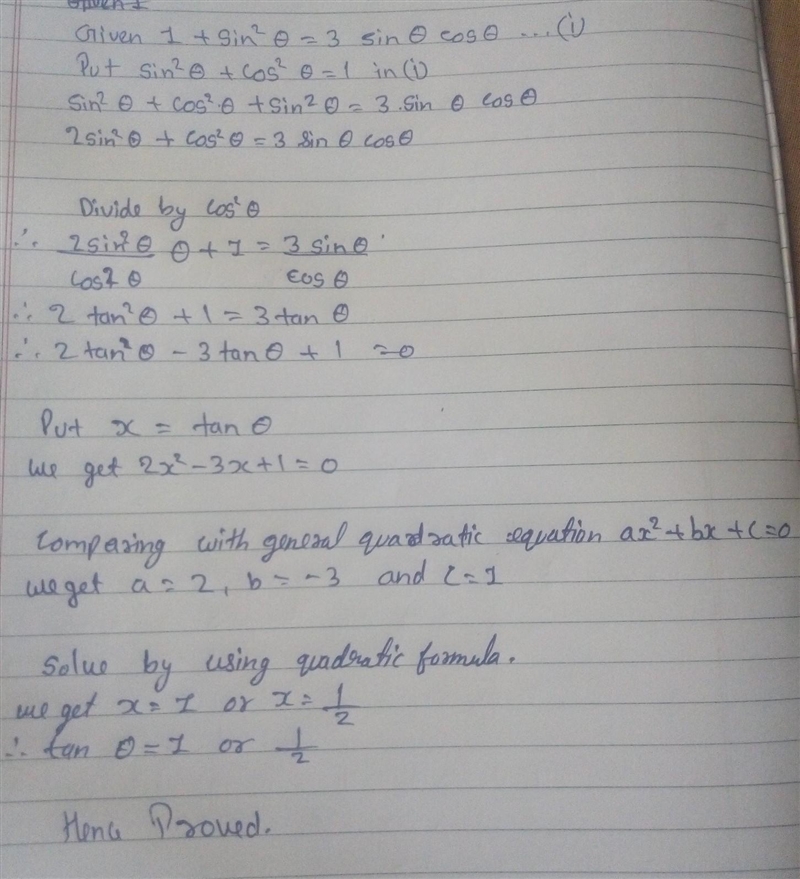 Given 1 + sin² θ = 3 sin θ cos θ ... (i)
Put sin² θ + cos² θ = 1 in (i)
sin² θ + cos² θ + sin² θ = 3 . sin θ cos θ
2 sin² θ + cos² θ = 3 sin θ cos θ
Divide by cos² θ
∴ 2 sin² θ / cos² θ θ + 1 = 3 sin θ / cos θ
∴ 2 tan² θ + 1 = 3 tan θ
∴ 2 tan² θ - 3 tan θ + 1 = 0
Put x = tan θ
We get 2x² - 3x + 1 = 0
Comparing with general quadratic equation ax² + bx + c = 0
we get a = 2, b = -3 and c = 1
Solve by using quadratic formula.
we get x = 1 or x = 1/2
∴ tan θ = 1 or 1/2
Henc Proved.